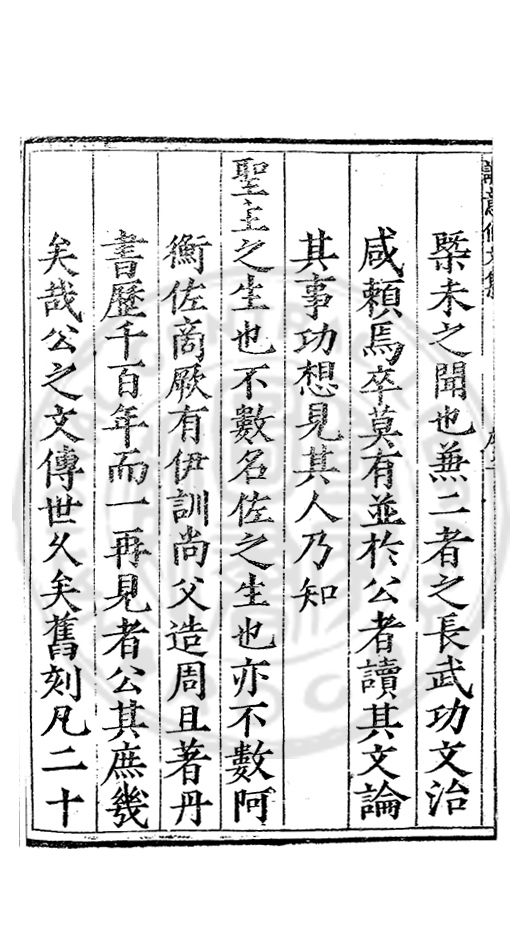 槩未之聞也兼二者之長武功文治
咸賴焉卒莫有並於公者讀其文論
其事功想見其人乃知
聖主之生也不數名佐之生也亦不數阿
衡佐商厥有伊訓尚父造周且著丹
書歷千百年而一再見者公其庶幾
矣哉公之文傳世久矣舊刻凡二十